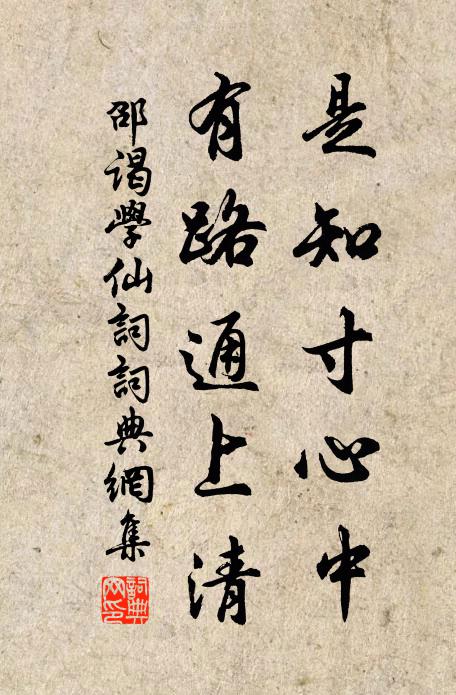 是知寸心中
有路通上清
邵謁學仙詞詞典網集
詞典網印